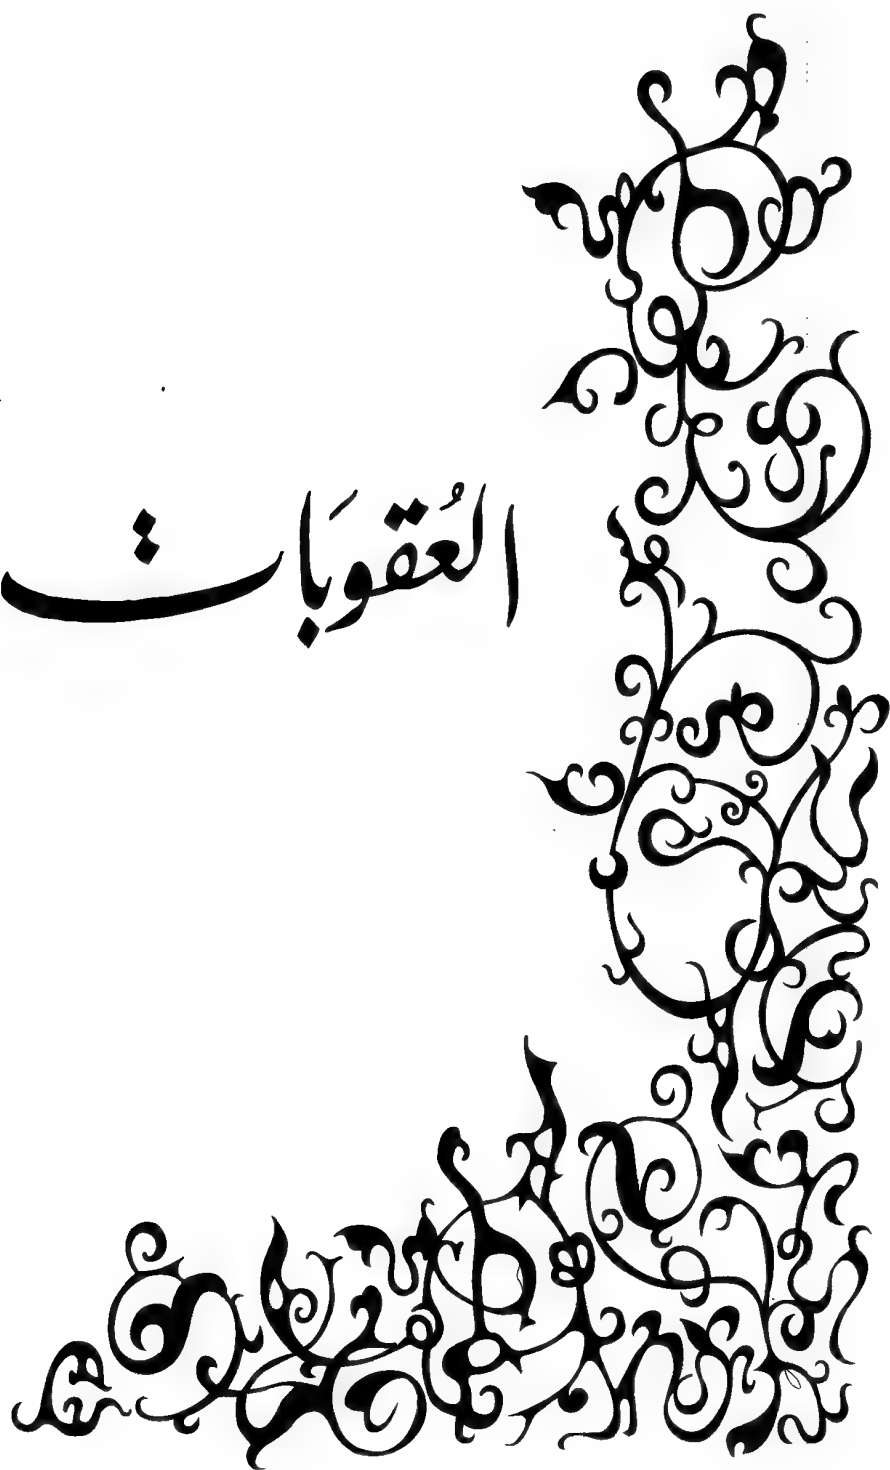 العُقوبَات